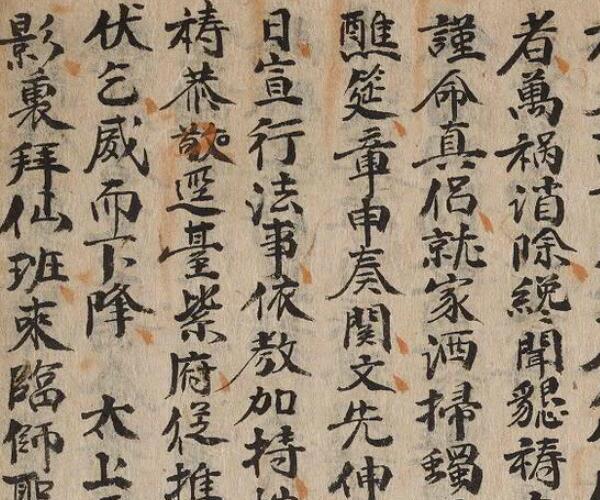 者萬禍消除纔聞懇禱
謹命真侶就家洒掃蠲
醮筵章申奏関文先伸
日宣行法事依教加持
祷恭臺紫府従推
伏乞威而下降 太上
影裏拜仙班來臨師